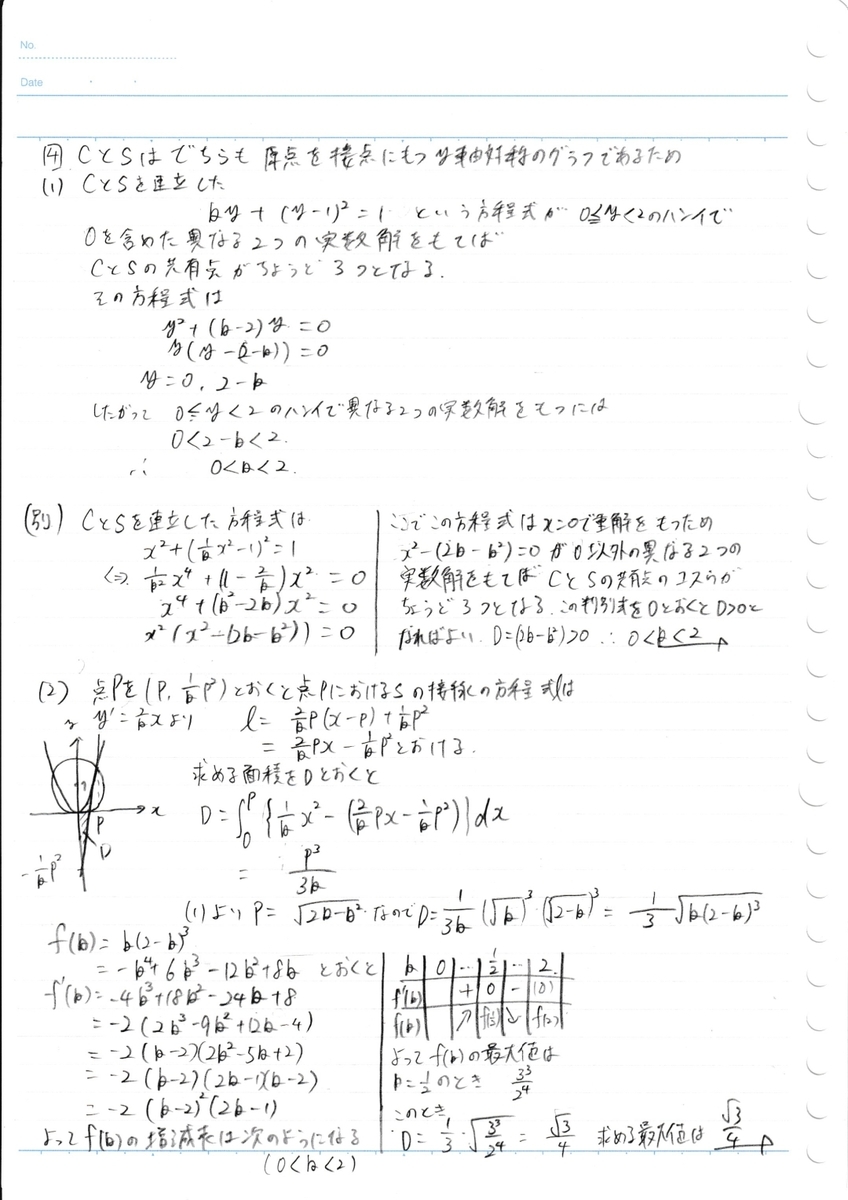 No.
Date
4 CとSはどちらも 原点を接点にもつy軸対称のグラフであるため
(1) CとSを連立した
by + (y-1)² = 1 という方程式が 0≦y<2のハンイで
0を含めた異なる2つの実数解をもてば
CとSの共有点がちょうど3つとなる.
その方程式は
y² + (b-2)y = 0
y(y-(2-b)) = 0
y = 0, 2-b
したがって 0≦y<2のハンイで異なる2つの実数解をもつには
0<2-b<2.
∴ 0<b<2.
(別) CとSを連立した方程式は
x² + (1/b x² - 1)² = 1
⇔ 1/b² x⁴ + (1 - 2/b) x² = 0
x⁴ + (b² - 2b) x² = 0
x² (x² - (2b - b²)) = 0
ここでこの方程式はx=0で重解をもつため
x² - (2b - b²) = 0 が0以外の異なる2つの
実数解をもてばCとSの共有点のコスウが
ちょうど3つとなる. この判別式をDとおくとD>0と
なればよい. D = (2b - b²) > 0 ∴ 0<b<2
(2) 点Pを(P, 1/b P²)とおくと点PにおけるSの接線の方程式lは
y' = 2/b x より l = 2/b P(x-P) + 1/b P²
= 2/b Px - 1/b P² とおける.
求める面積をDとおくと
D = ∫₀ᴾ {1/b x² - (2/b Px - 1/b P²)} dx
= P³/3b
x
P
D
-1/b P²
(1)より P = √(2b-b²) なので D = 1/3b (√b)³ (√(2-b))³ = 1/3 √(b(2-b)³)
f(b) = b(2-b)³
= -b⁴ + 6b³ - 12b² + 8b とおくと
f'(b) = -4b³ + 18b² - 24b + 8
= -2 (2b³ - 9b² + 12b - 4)
= -2 (b-2)(2b² - 5b + 2)
= -2 (b-2)(2b-1)(b-2)
= -2 (b-2)² (2b-1)
よってf(b)の増減表は次のようになる
(0<b<2)
b 0 … 1/2 … 2
f'(b) + 0 - (0)
f(b) ↗ f(1/2) ↘ f(2)
よってf(b)の最大値は
b = 1/2 のとき 3³/2⁴
このとき
D = 1/3 · √(3³/2⁴) = √3/4 求める最大値は √3/4